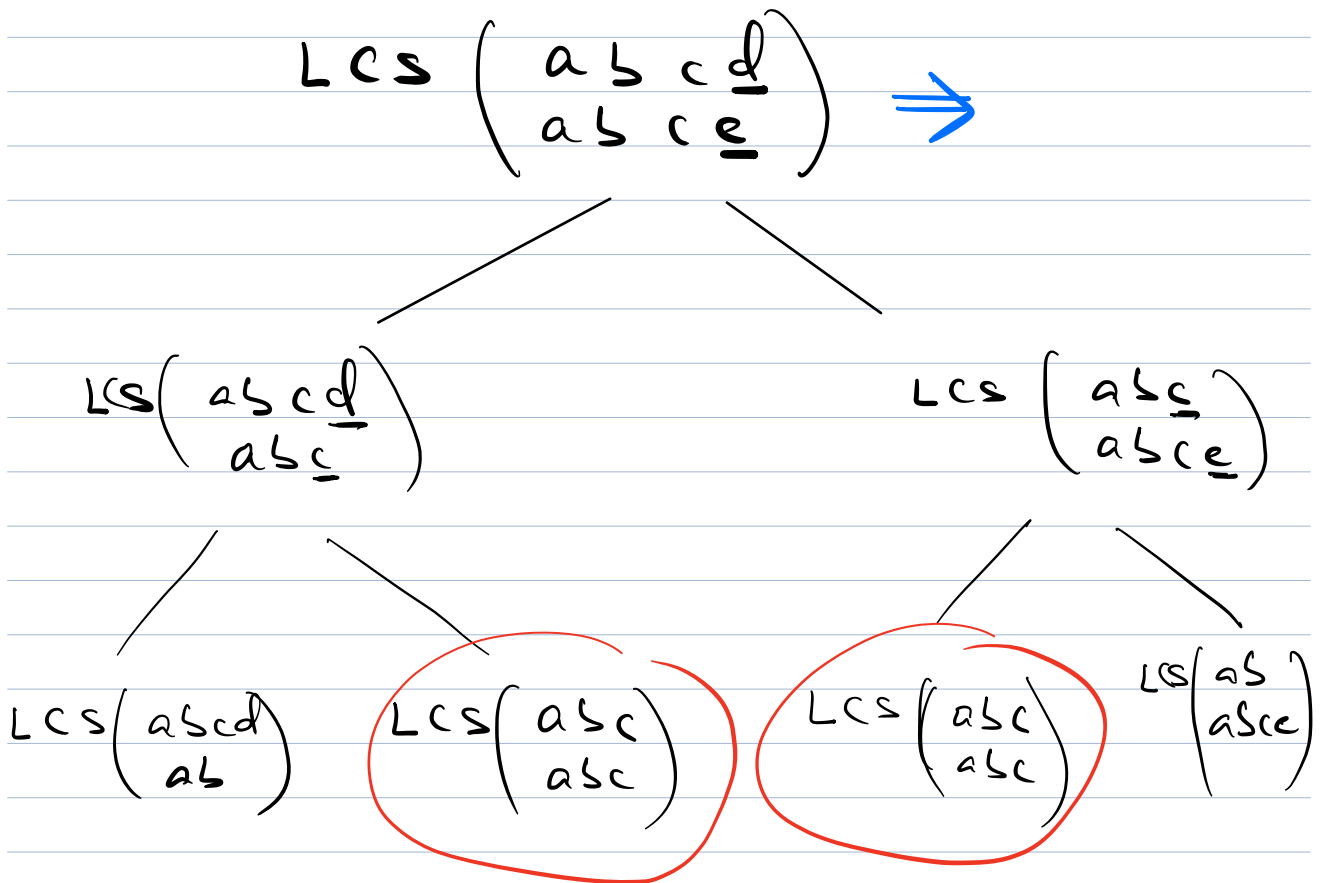 LCS ( a b c d ) ⇒
a b c e
LCS ( a b c d )
a b c
LCS ( a b c )
a b c e
LCS ( a b c d )
a b
LCS ( a b c )
a b c
LCS ( a b c )
a b c
LCS ( a b )
a b c e